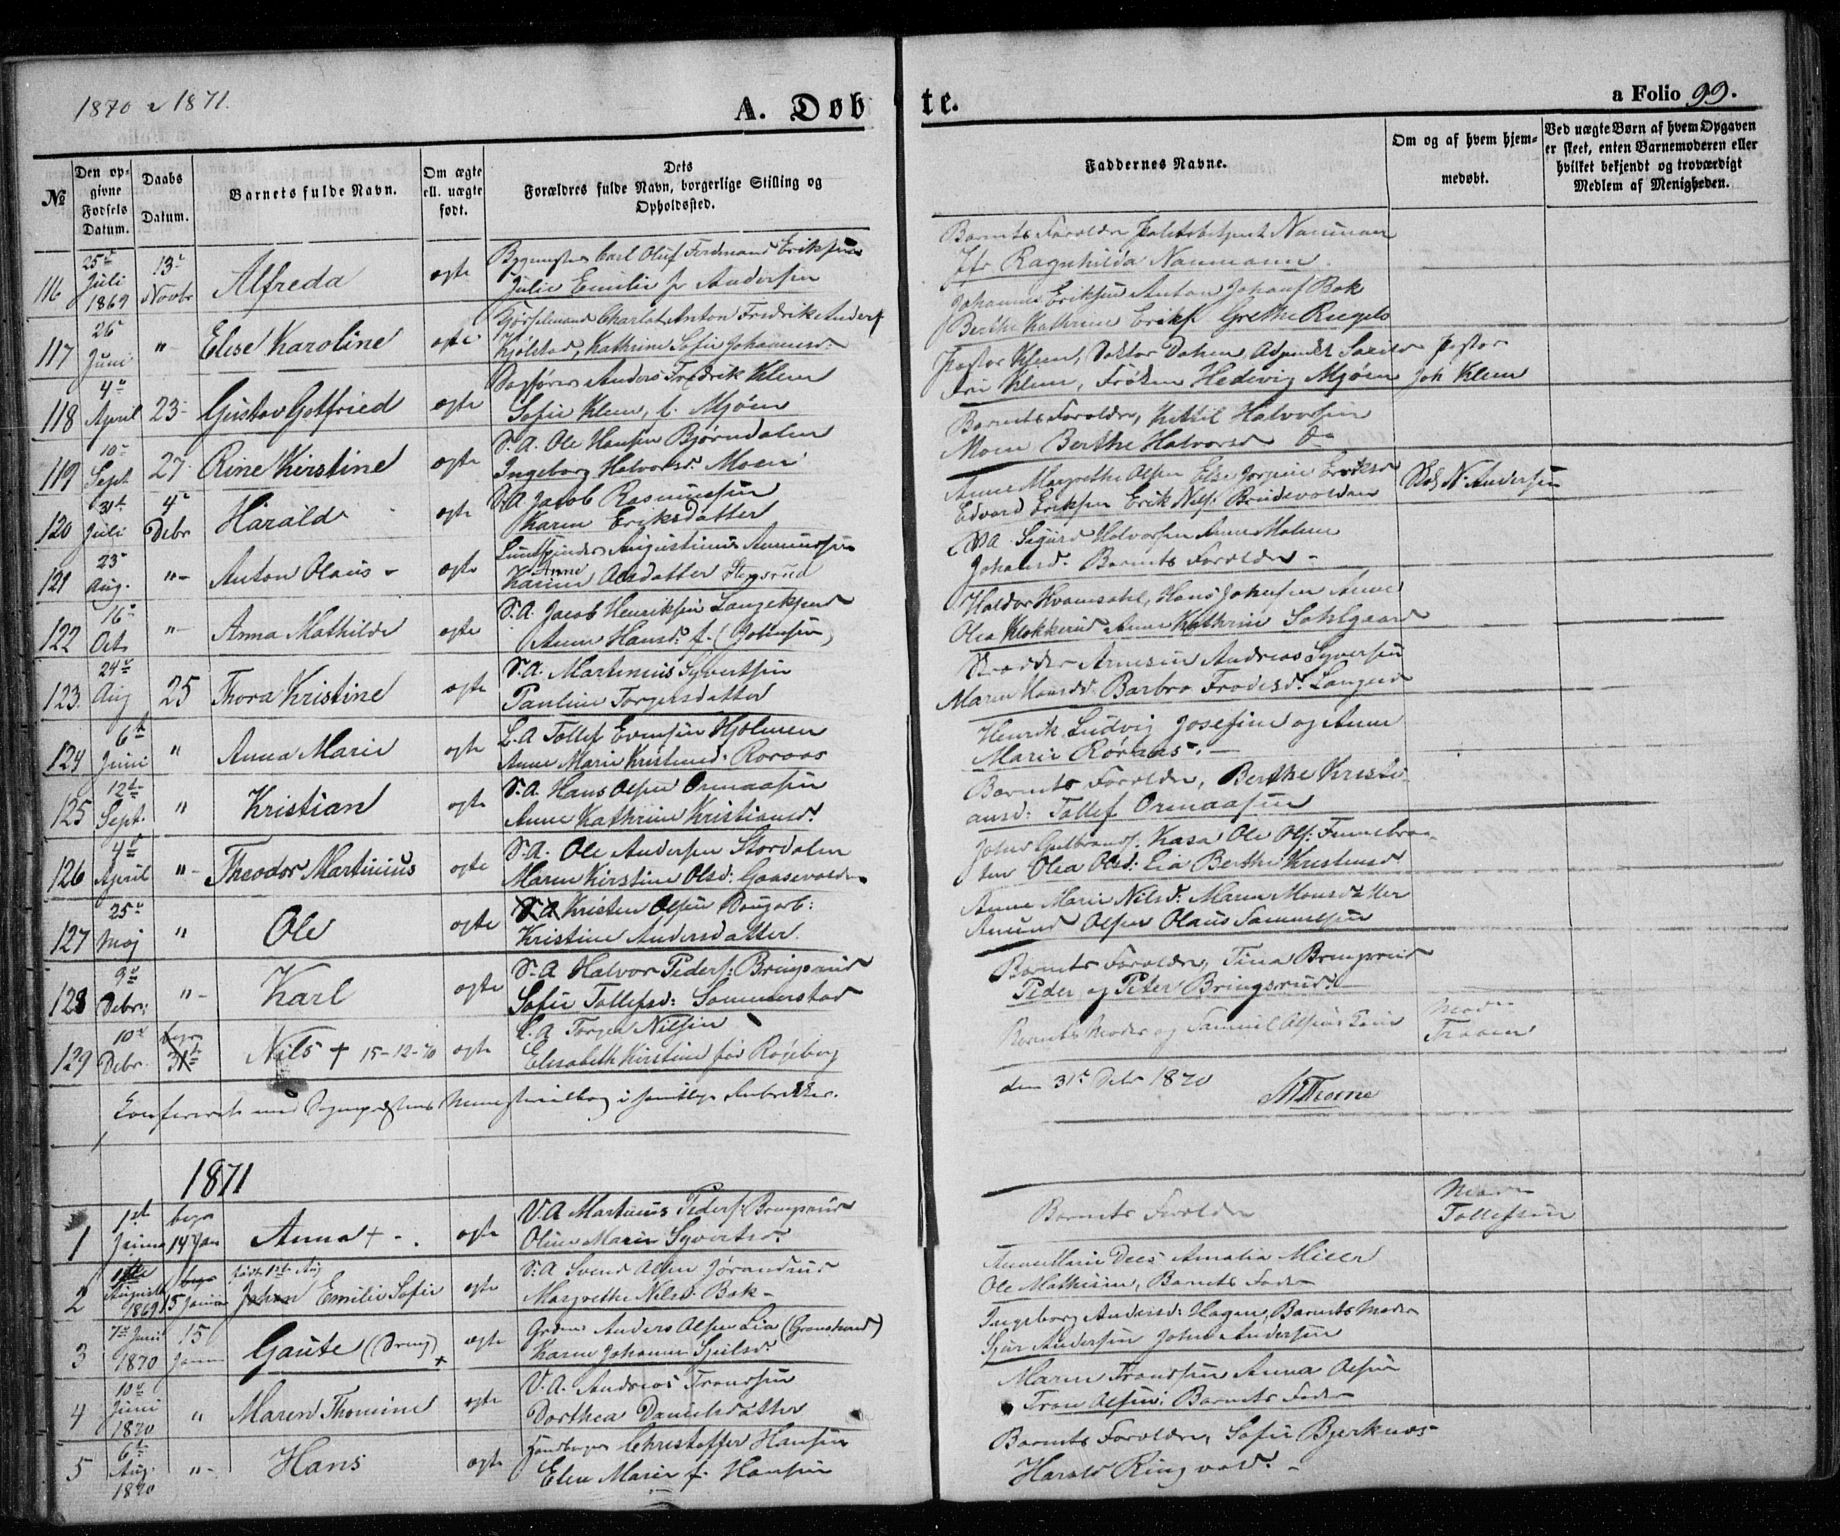 1870 & 1871.
A. Døbte.
a Folio 99.
№
Den opgivne Fødsels Datum.
Daabs Datum.
Barnets fulde Navn.
Om ægte ell. uægte født.
Dets Forældres fulde Navn, borgerlige Stilling og Opholdssted.
Faddernes Navne.
Om og af hvem hjemmedøbt.
Ved uægte Børn af hvem Opgaven er skeet, enten Barnemoderen eller hvilket bekjendt og troværdigt Medlem af Menigheden.
116 25de Juli 1869 13de Novbr Alfreda ægte
Carl Oluf Ferdinand Eriksen
Julie Emilie f. Andersen
Barnets Forældre Naumann
Jfr Ragnhilda Naumann.
117 26 Juni " Elise Karoline ægte
Anton Fredrik Anders
Kathrine Sofie Johannesd:
Johannes Eriksen Anton Johans Bok
Berthe Kathrine Eriks Grethe Riegels
118 4de April 23 Gustav Gotfried ægte
Sagfører Anders Fredrik Klem
Sofie Klem, f. Mjøen
Pastor Klem, Doktor Dahm, Adjunkt
Fru Klem, Frøken Hedevig Mjøen
Pastor
Joh Klem
119 10de Sept 27 Rine Kirstine ægte
S.A. Ole Hansen Bjørndalen
Ingeborg Halvorsd: Moen
Barnets Forældre, Kittil Halvorsen
Moen Berthe Halvorsd Do
120 31te Juli 4de Debr Harald ægte
S.A. Jacob Rasmussen
Karen Eriksdatter
Anne Margrethe Olsen Else Jørgine Eriksd
Edvard Eriksen Erik Nils. Brudevolden
N. Andersen
121 23 Aug. " Anton Olaus ægte
Augustinus Amundsen
Anne
Karine Olsdatter Stensrud
S.A. Sigurd Halvorsen Anne Malene
Johansd. Barnets Forældre
122 16de Oct. " Anna Mathilde ægte
S.A. Jacob Henriksen Langekjend
Anne Hansd: f.
Haldor Kvamsdahl, Hans Johnsen Anne
Olea Klokkerud Anne Kathrine Solgaard
123. 24de Aug 25 Thora Kristine ægte
S.A. Martinius Syvertsen
Pauline Torgersdatter
Arnesen Andreas Syversen
Maren Hansd: Barbro Frodesd:
124 6te Juni " Anna Marie ægte
L.A Tollef Evensen Hjolmen
Anne Marie Kristensd: Roraas
Henrik Ludvig Josefine og Anne
Marie Roraas.
125 12te Sept. " Kristian ægte
S.A. Hans Olsen Ormaasen
Anne Kathrine Kristiansd.
Barnets Forældre, Berthe Kristi-
ansd: Tollef Ormaasen
126 4de April " Theodor Martinius ægte
S.A. Ole Andersen Stordalen
Maren Kirstine Olsd: Gaasevolden
John Gulbrands. Kasa Ole Ols:
ten Olea Olsd: Lia Berthe Kristensd
127 25de Maj " Ole ægte
Kristen Olsen
Kristine Andersdatter
Anne Marie Nilsd: Maren Monsdatter
Amund Olsen Olaus Samuelsen
128 9de Debr: " Karl ægte
S.A Halvor Peders: Bringsrud
Sofie Tollefsd: Sommerstad
Barnets Forældre, Tina Bringsrud
Peder og Peter Bringsrud
129 10de Debr 31te Nils + 15-12-70 ægte
L.A Torger Nilsen
Elisabeth Kirstine fød Røgeberg
Barnets Moder og Samuel Olsens
Mad
Traaen
Conferered med Sognepræstens Ministerialbog i samtlige Rubrikker.
den 31te Debr 1870
1871
1 1ste Januar 14de Jan Anna + ægte
V.A Martinius Peders: Bringsrud
Oline Marie Syvertsd:
Barnets Forældre
Mad
Tollefsen
2 August 1869 15 Januar født 1ste Aug
Johan Emilie Sofie ægte
S.A Svend Olsen Jørandrud
Margrethe Nilsd: Bak
Anne Marie Dees Amalia Mier
Ole Mathisen, Barnets Fader
3 7de Juni 1870 15 Janu Gaute (Dreng) + ægte
Anders Olsen Lia (Granstrand)
Karen Johanne
Ingeborg Andersd: Hagen, Barnets Moder
Sjur Andersen John Andersen
4 10de Juni 1870 " Maren Thomine ægte
V.A. Andreas Transen
Dorthea Danielsdatter
Maren Transen Anna Olsen
Tron Olsen. Barnets Fader
5 6te Aug. 1870 " Hans ægte
Christoffer Hansen
Elen Marie f. Hansen
Barnets Forældre, Sofie Bjerknæs
Harald Ringvold.